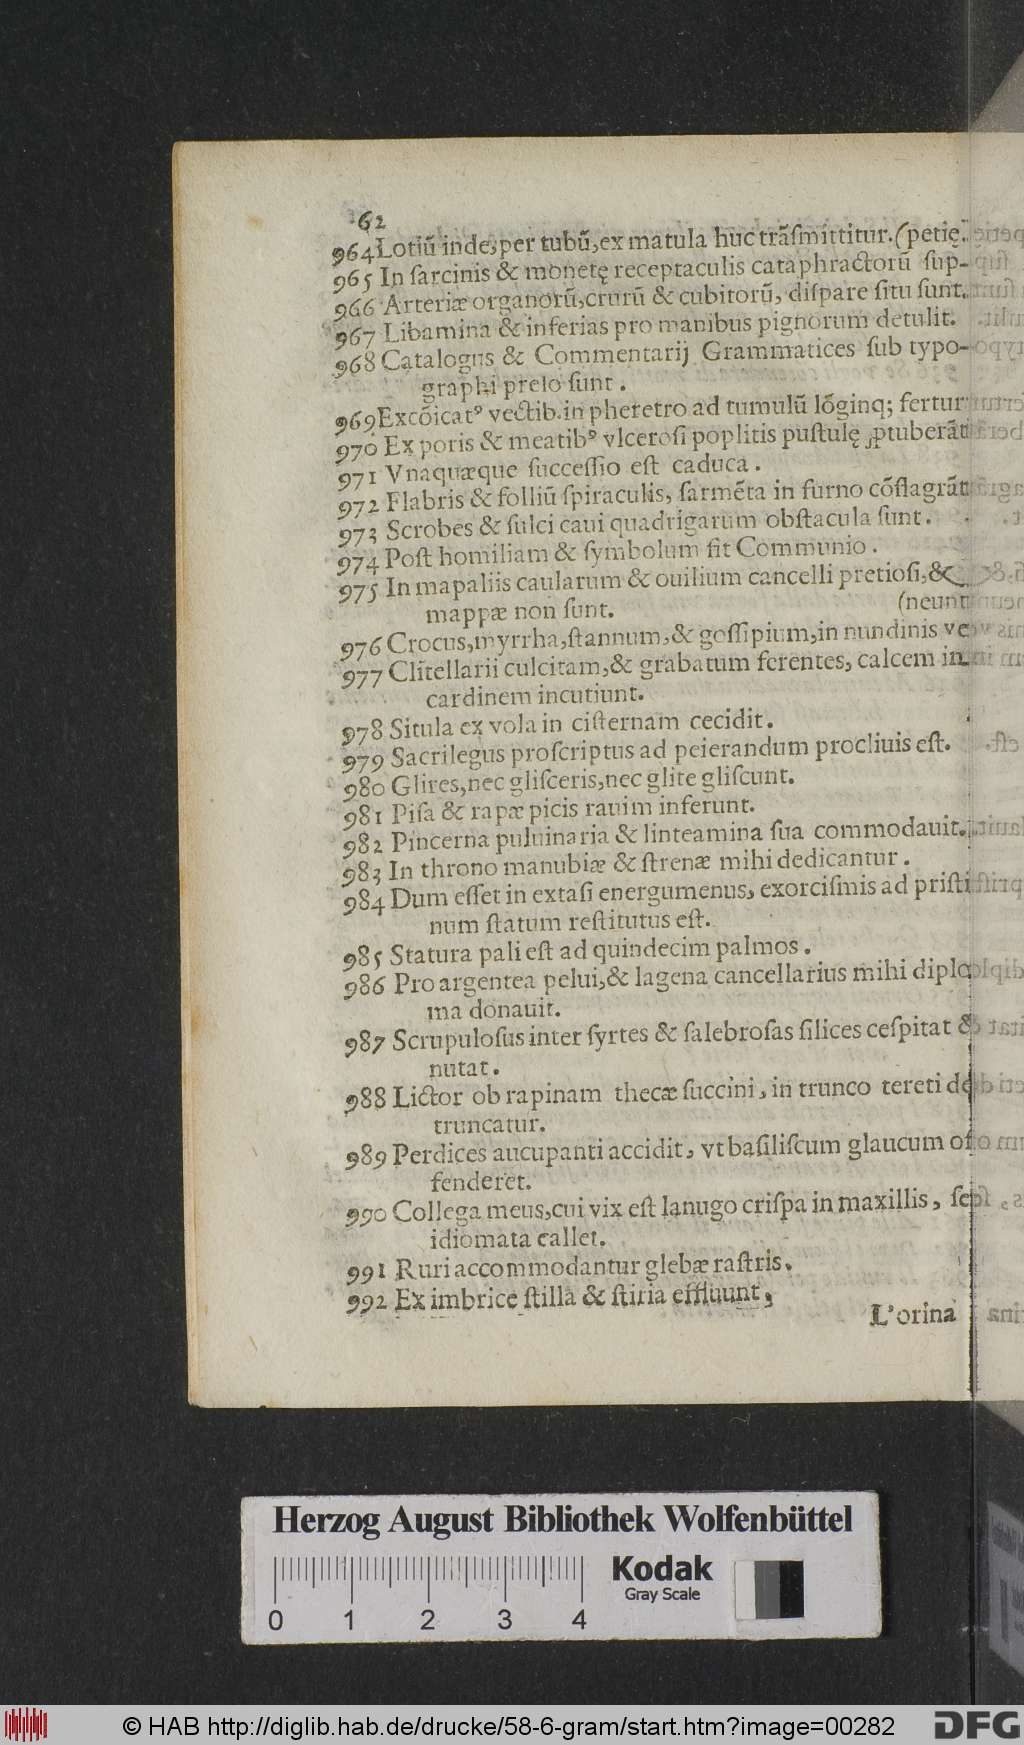 62
964 Lotiū inde, per tubū, ex matula huc trāſmittitur. (petię.
965 In ſarcinis & monetę receptaculis cataphractorū ſup-
966 Arteriæ organorū, crurū & cubitorū, diſpare ſitu ſunt.
967 Libamina & inferias pro manibus pignorum detulit.
968 Catalogus & Commentarij Grammatices ſub typo-
graphi prelo ſunt.
969 Excōicatꝰ vectib. in pheretro ad tumulū lōginq; fertur
970 Ex poris & meatibꝰ vlceroſi poplitis puſtulę ꝓtuberāt
971 Vnaquæque ſucceſſio eſt caduca.
972 Flabris & folliū ſpiraculis, ſarmēta in furno cōflagrāt
973 Scrobes & ſulci caui quadrigarum obſtacula ſunt.
974 Poſt homiliam & ſymbolum fit Communio.
975 In mapaliis caularum & ouilium cancelli pretioſi, &
mappæ non ſunt. (neunt
976 Crocus, myrrha, ſtannum, & goſſipium, in nundinis ve
977 Clitellarii culcitam, & grabatum ferentes, calcem in
cardinem incutiunt.
978 Situla ex vola in ciſternam cecidit.
979 Sacrilegus proſcriptus ad peierandum procliuis eſt.
980 Glires, nec gliſceris, nec glite gliſcunt.
981 Piſa & rapæ picis rauim inferunt.
982 Pincerna puluinaria & linteamina ſua commodauit.
983 In throno manubiæ & ſtrenæ mihi dedicantur.
984 Dum eſſet in extaſi energumenus, exorciſmis ad priſti
num ſtatum reſtitutus eſt.
985 Statura pali eſt ad quindecim palmos.
986 Pro argentea pelui, & lagena cancellarius mihi diplo
ma donauit.
987 Scrupuloſus inter ſyrtes & ſalebroſas ſilices ceſpitat &
nutat.
988 Lictor ob rapinam thecæ ſuccini, in trunco tereti de
truncatur.
989 Perdices aucupanti accidit, vt baſiliſcum glaucum of
fenderet.
990 Collega meus, cui vix eſt lanugo criſpa in maxillis, ſex
idiomata callet.
991 Ruri accommodantur glebæ raſtris.
992 Ex imbrice ſtilla & ſtiria effluunt,
L'orina
Herzog August Bibliothek Wolfenbüttel
Kodak
Gray Scale
0 1 2 3 4
© HAB http://diglib.hab.de/drucke/58-6-gram/start.htm?image=00282
DFG